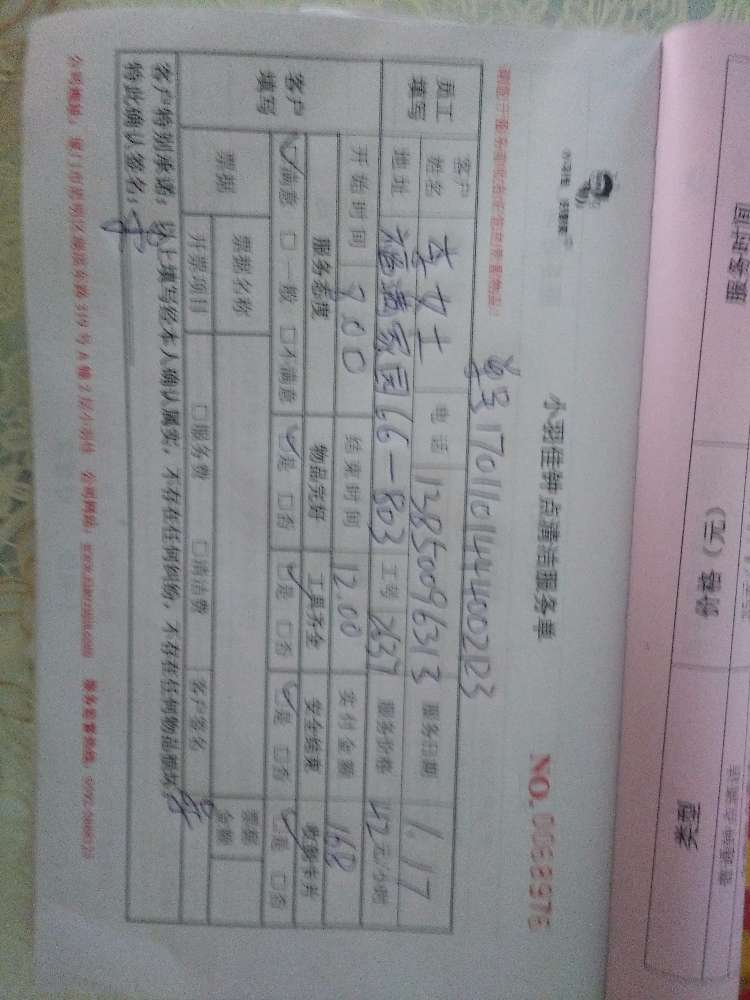 小羽佳钟点清洁服务单
NO. 0098976
单号170110144400203
员工填写
客户姓名 李女士 电话 13850096313 服务日期 1.17
地址 福满家园66-803 工号 2637 服务价格 42元/小时
开始时间 9.00 结束时间 12.00 实付金额 168
客户填写
服务态度 物品完好 工具齐全 安全结束 收到卡片
☑满意 □一般 □不满意 ☑是 □否 ☑是 □否 ☑是 □否 ☑是 □否
票据 票据名称 票据金额
开票项目 □服务费 □清洁费 客户签名
客户特别承诺:以上填写经本人确认属实,不存在任何纠纷,不存在任何物品损坏,
特此确认签名:
服务时间
价格(元)
类型
普通钟点清洁